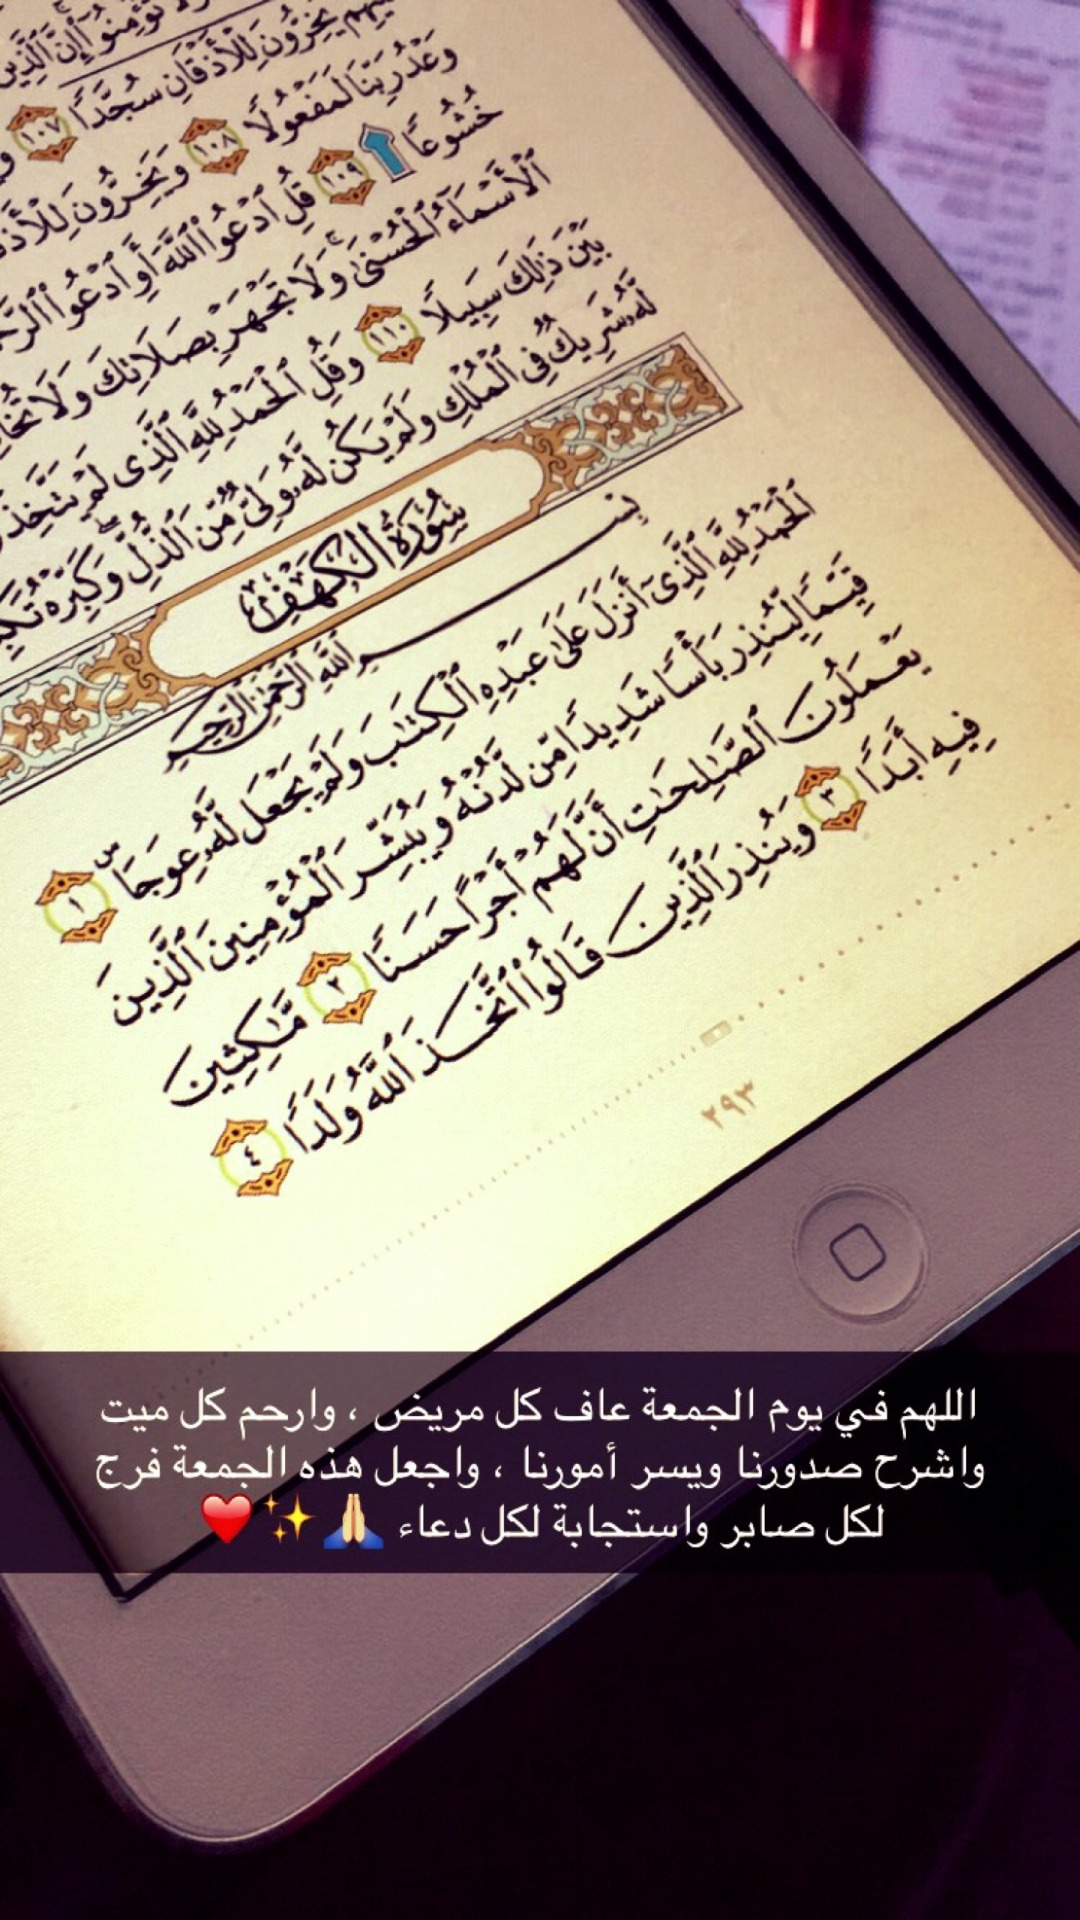 يَخِرُّونَ لِلْأَذْقَانِ سُجَّدًا ١٠٧
وَعْدُ رَبِّنَا لَمَفْعُولًا ١٠٨ وَيَخِرُّونَ
خُشُوعًا ١٠٩ قُلِ ٱدْعُوا۟ ٱللَّهَ أَوِ ٱدْعُوا۟
ٱلْأَسْمَآءُ ٱلْحُسْنَىٰ وَلَا تَجْهَرْ بِصَلَاتِكَ وَلَا
بَيْنَ ذَٰلِكَ سَبِيلًا ١١٠ وَقُلِ ٱلْحَمْدُ لِلَّهِ ٱلَّذِى لَمْ
لَّهُۥ شَرِيكٌ فِى ٱلْمُلْكِ وَلَمْ يَكُن لَّهُۥ وَلِىٌّ مِّنَ ٱلذُّلِّ وَكَبِّرْهُ
سُورَةُ الكَهْفِ
بِسْمِ ٱللَّهِ ٱلرَّحْمَٰنِ ٱلرَّحِيمِ
ٱلْحَمْدُ لِلَّهِ ٱلَّذِىٓ أَنزَلَ عَلَىٰ عَبْدِهِ ٱلْكِتَٰبَ وَلَمْ يَجْعَل لَّهُۥ عِوَجَاۜ ١
قَيِّمًا لِّيُنذِرَ بَأْسًا شَدِيدًا مِّن لَّدُنْهُ وَيُبَشِّرَ ٱلْمُؤْمِنِينَ ٱلَّذِينَ
يَعْمَلُونَ ٱلصَّٰلِحَٰتِ أَنَّ لَهُمْ أَجْرًا حَسَنًا ٢ مَّٰكِثِينَ
فِيهِ أَبَدًا ٣ وَيُنذِرَ ٱلَّذِينَ قَالُوا۟ ٱتَّخَذَ ٱللَّهُ وَلَدًا ٤
٢٩٣
اللهم في يوم الجمعة عاف كل مريض ، وارحم كل ميت
واشرح صدورنا ويسر أمورنا ، واجعل هذه الجمعة فرج
لكل صابر واستجابة لكل دعاء 🙏✨❤️